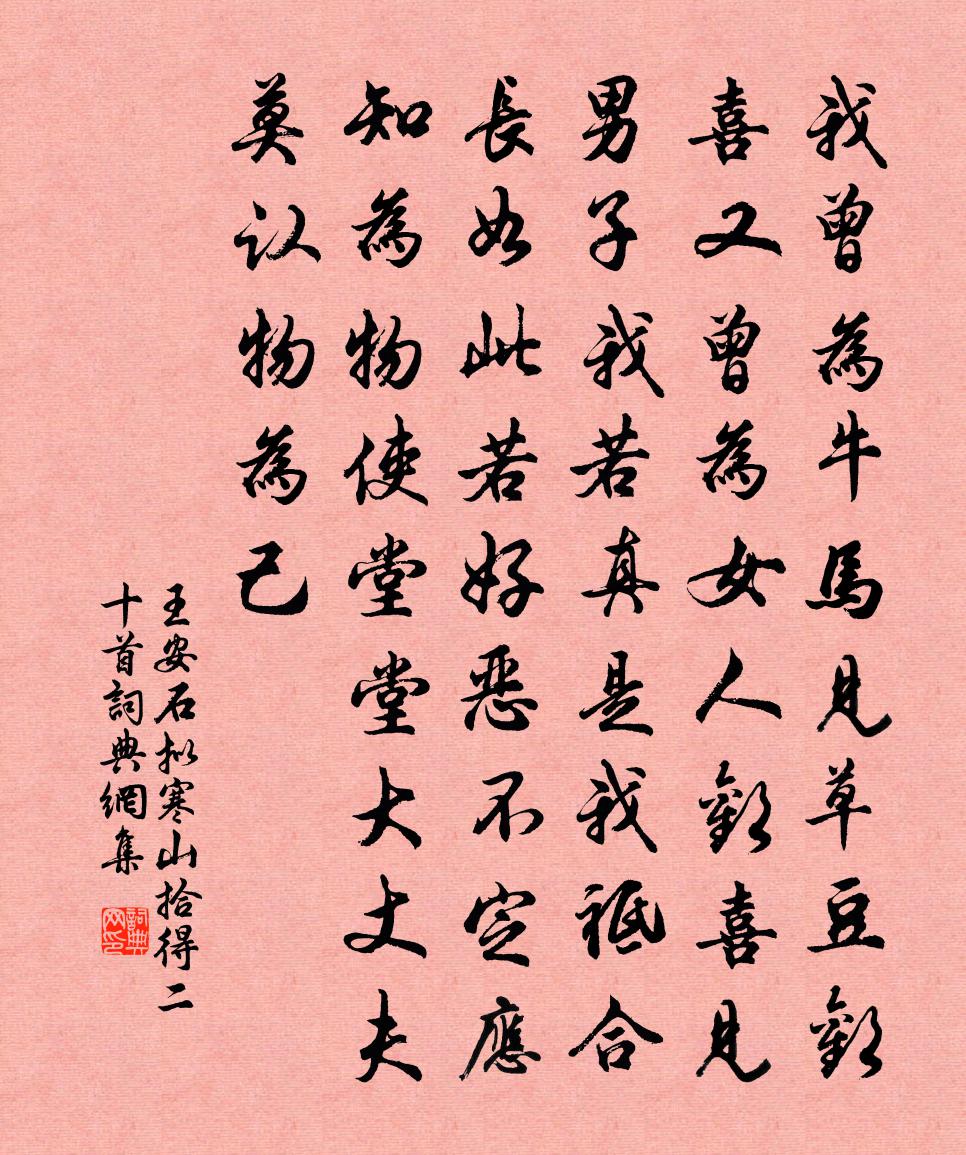 我曾為牛馬見草豆歡
喜又曾為女人歡喜見
男子我若真是我祗合
長如此若好惡不定應
知為物使堂堂大丈夫
莫认物為己
王安石拟寒山拾得二
十首詞典網集
詞典网印